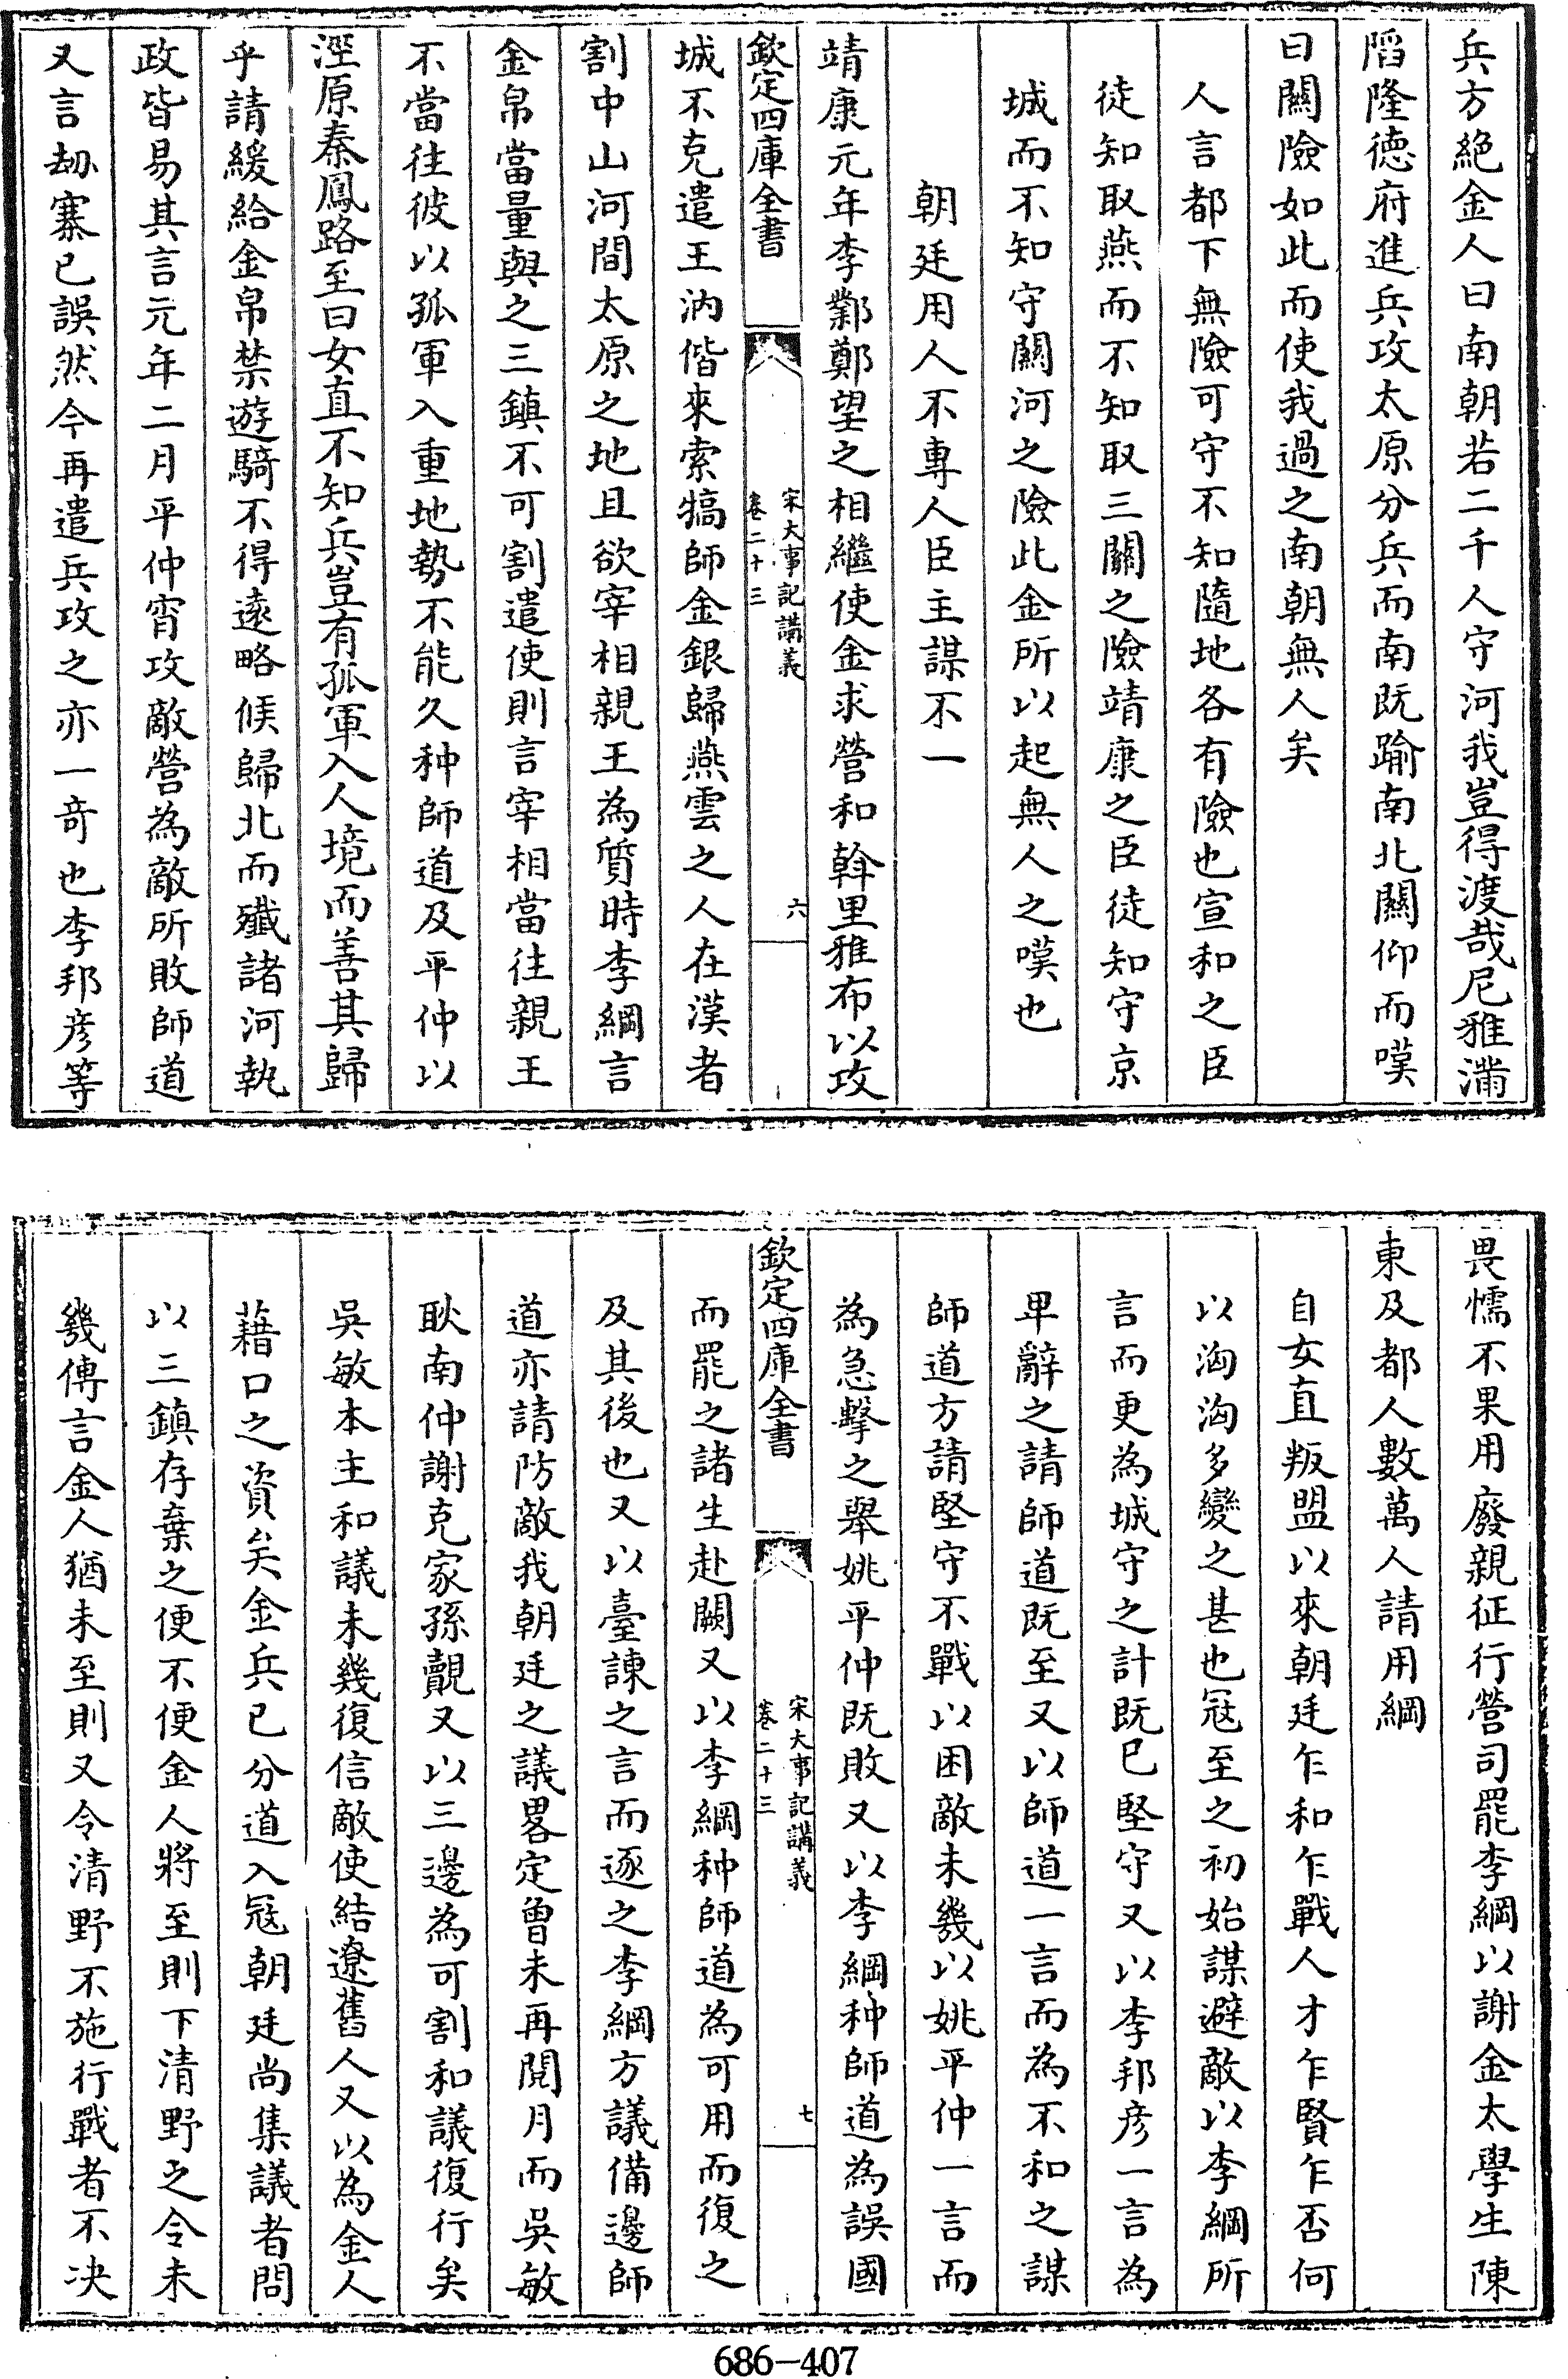 兵方絶金人曰南朝若二千人守河我豈得渡哉尼雅滿
陷隆徳府進兵攻太原分兵而南既踰南北闗仰而嘆
曰闗險如此而使我過之南朝無人矣
人言都下無險可守不知隨地各有險也宣和之臣
徒知取燕而不知取三闗之險靖康之臣徒知守京
城而不知守闗河之險此金所以起無人之嘆也
朝廷用人不專人臣主謀不一
靖康元年李鄴鄭望之相繼使金求營和斡里雅布以攻
欽定四庫全書
宋大事記講義
卷二十三
六
城不克遣王汭偕來索犒師金銀歸燕雲之人在漢者
割中山河間太原之地且欲宰相親王為質時李綱言
金帛當量與之三鎮不可割遣使則言宰相當往親王
不當往彼以孤軍入重地勢不能久种師道及平仲以
涇原秦鳳路至曰女直不知兵豈有孤軍入人境而善其歸
乎請緩給金帛禁遊騎不得遠略候歸北而殲諸河執
政皆易其言元年二月平仲宵攻敵營為敵所敗師道
又言刼寨已誤然今再遣兵攻之亦一奇也李邦彦等
畏懦不果用廢親征行營司罷李綱以謝金太學生陳
東及都人數萬人請用綱
自女直叛盟以來朝廷乍和乍戰人才乍賢乍否何
以洶洶多變之甚也冦至之初始謀避敵以李綱所
言而更為城守之計既已堅守又以李邦彦一言為
卑辭之請師道既至又以師道一言而為不和之謀
師道方請堅守不戰以困敵未幾以姚平仲一言而
為急擊之舉姚平仲既敗又以李綱种師道為誤國
欽定四庫全書
宋大事記講義
卷二十三
七
而罷之諸生赴闕又以李綱种師道為可用而復之
及其後也又以臺諫之言而逐之李綱方議備邊師
道亦請防敵我朝廷之議畧定曾未再閲月而吳敏
耿南仲謝克家孫覿又以三邊為可割和議復行矣
吳敏本主和議未幾復信敵使結遼舊人又以為金人
藉口之資矣金兵已分道入冦朝廷尚集議者問
以三鎮存棄之便不便金人將至則下清野之令未
幾傳言金人猶未至則又令清野不施行戰者不决
686-407